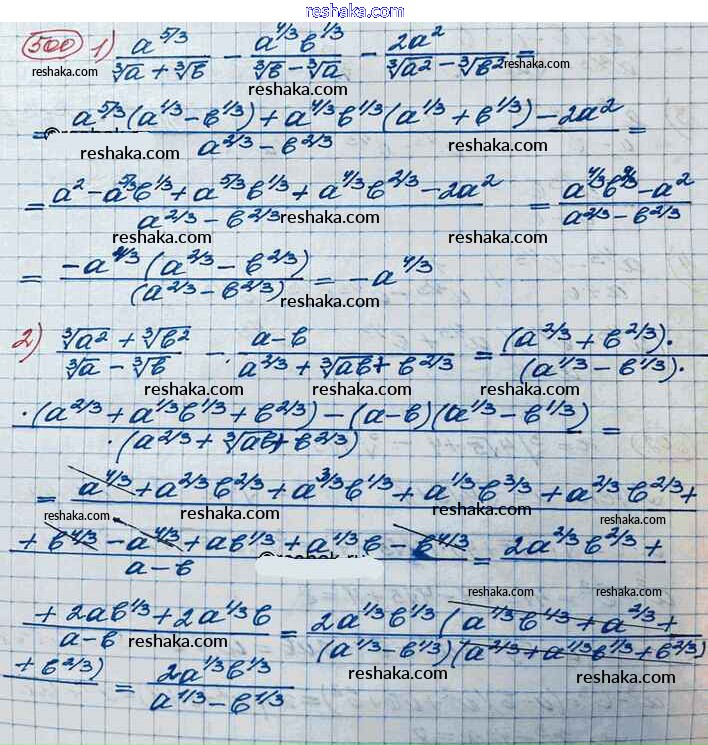 reshaka.com
500 1) a^{5/3}/(∛a + ∛b) - a^{4/3}b^{1/3}/(∛b - ∛a) - 2a²/(∛a² - ∛b²) =
reshaka.com reshaka.com reshaka.com reshaka.com
= (a^{5/3}(a^{1/3} - b^{1/3}) + a^{4/3}b^{1/3}(a^{1/3} + b^{1/3}) - 2a²)/(a^{2/3} - b^{2/3}) =
reshaka.com reshaka.com
= (a² - a^{5/3}b^{1/3} + a^{5/3}b^{1/3} + a^{4/3}b^{2/3} - 2a²)/(a^{2/3} - b^{2/3}) = (a^{4/3}b^{2/3} - a²)/(a^{2/3} - b^{2/3})
reshaka.com reshaka.com reshaka.com
= -a^{4/3}(a^{2/3} - b^{2/3})/(a^{2/3} - b^{2/3}) = -a^{4/3}
reshaka.com reshaka.com
2) (∛a² + ∛b²)/(∛a - ∛b) - (a-b)/(a^{2/3} + ∛ab + b^{2/3}) = (a^{2/3} + b^{2/3})·/(a^{1/3} - b^{1/3})·
reshaka.com reshaka.com reshaka.com
·(a^{2/3} + a^{1/3}b^{1/3} + b^{2/3}) - (a-b)(a^{1/3} - b^{1/3})/·(a^{2/3} + ∛ab + b^{2/3}) =
reshaka.com reshaka.com
= a^{4/3} + a^{2/3}b^{2/3} + a^{3/3}b^{1/3} + a^{1/3}b^{3/3} + a^{2/3}b^{2/3} +
reshaka.com reshaka.com reshaka.com
+ b^{4/3} - a^{4/3} + ab^{1/3} + a^{1/3}b - b^{4/3}/(a-b) = 2a^{2/3}b^{2/3} +
reshaka.com reshaka.com
+ 2ab^{1/3} + 2a^{1/3}b/(a-b) = 2a^{1/3}b^{1/3}(a^{1/3}b^{1/3} + a^{2/3} +/(a^{1/3} - b^{1/3})(a^{2/3} + a^{1/3}b^{1/3} + b^{2/3})
reshaka.com reshaka.com reshaka.com
+ b^{2/3}) = 2a^{1/3}b^{1/3}/(a^{1/3} - b^{1/3})
reshaka.com reshaka.com
reshaka.com